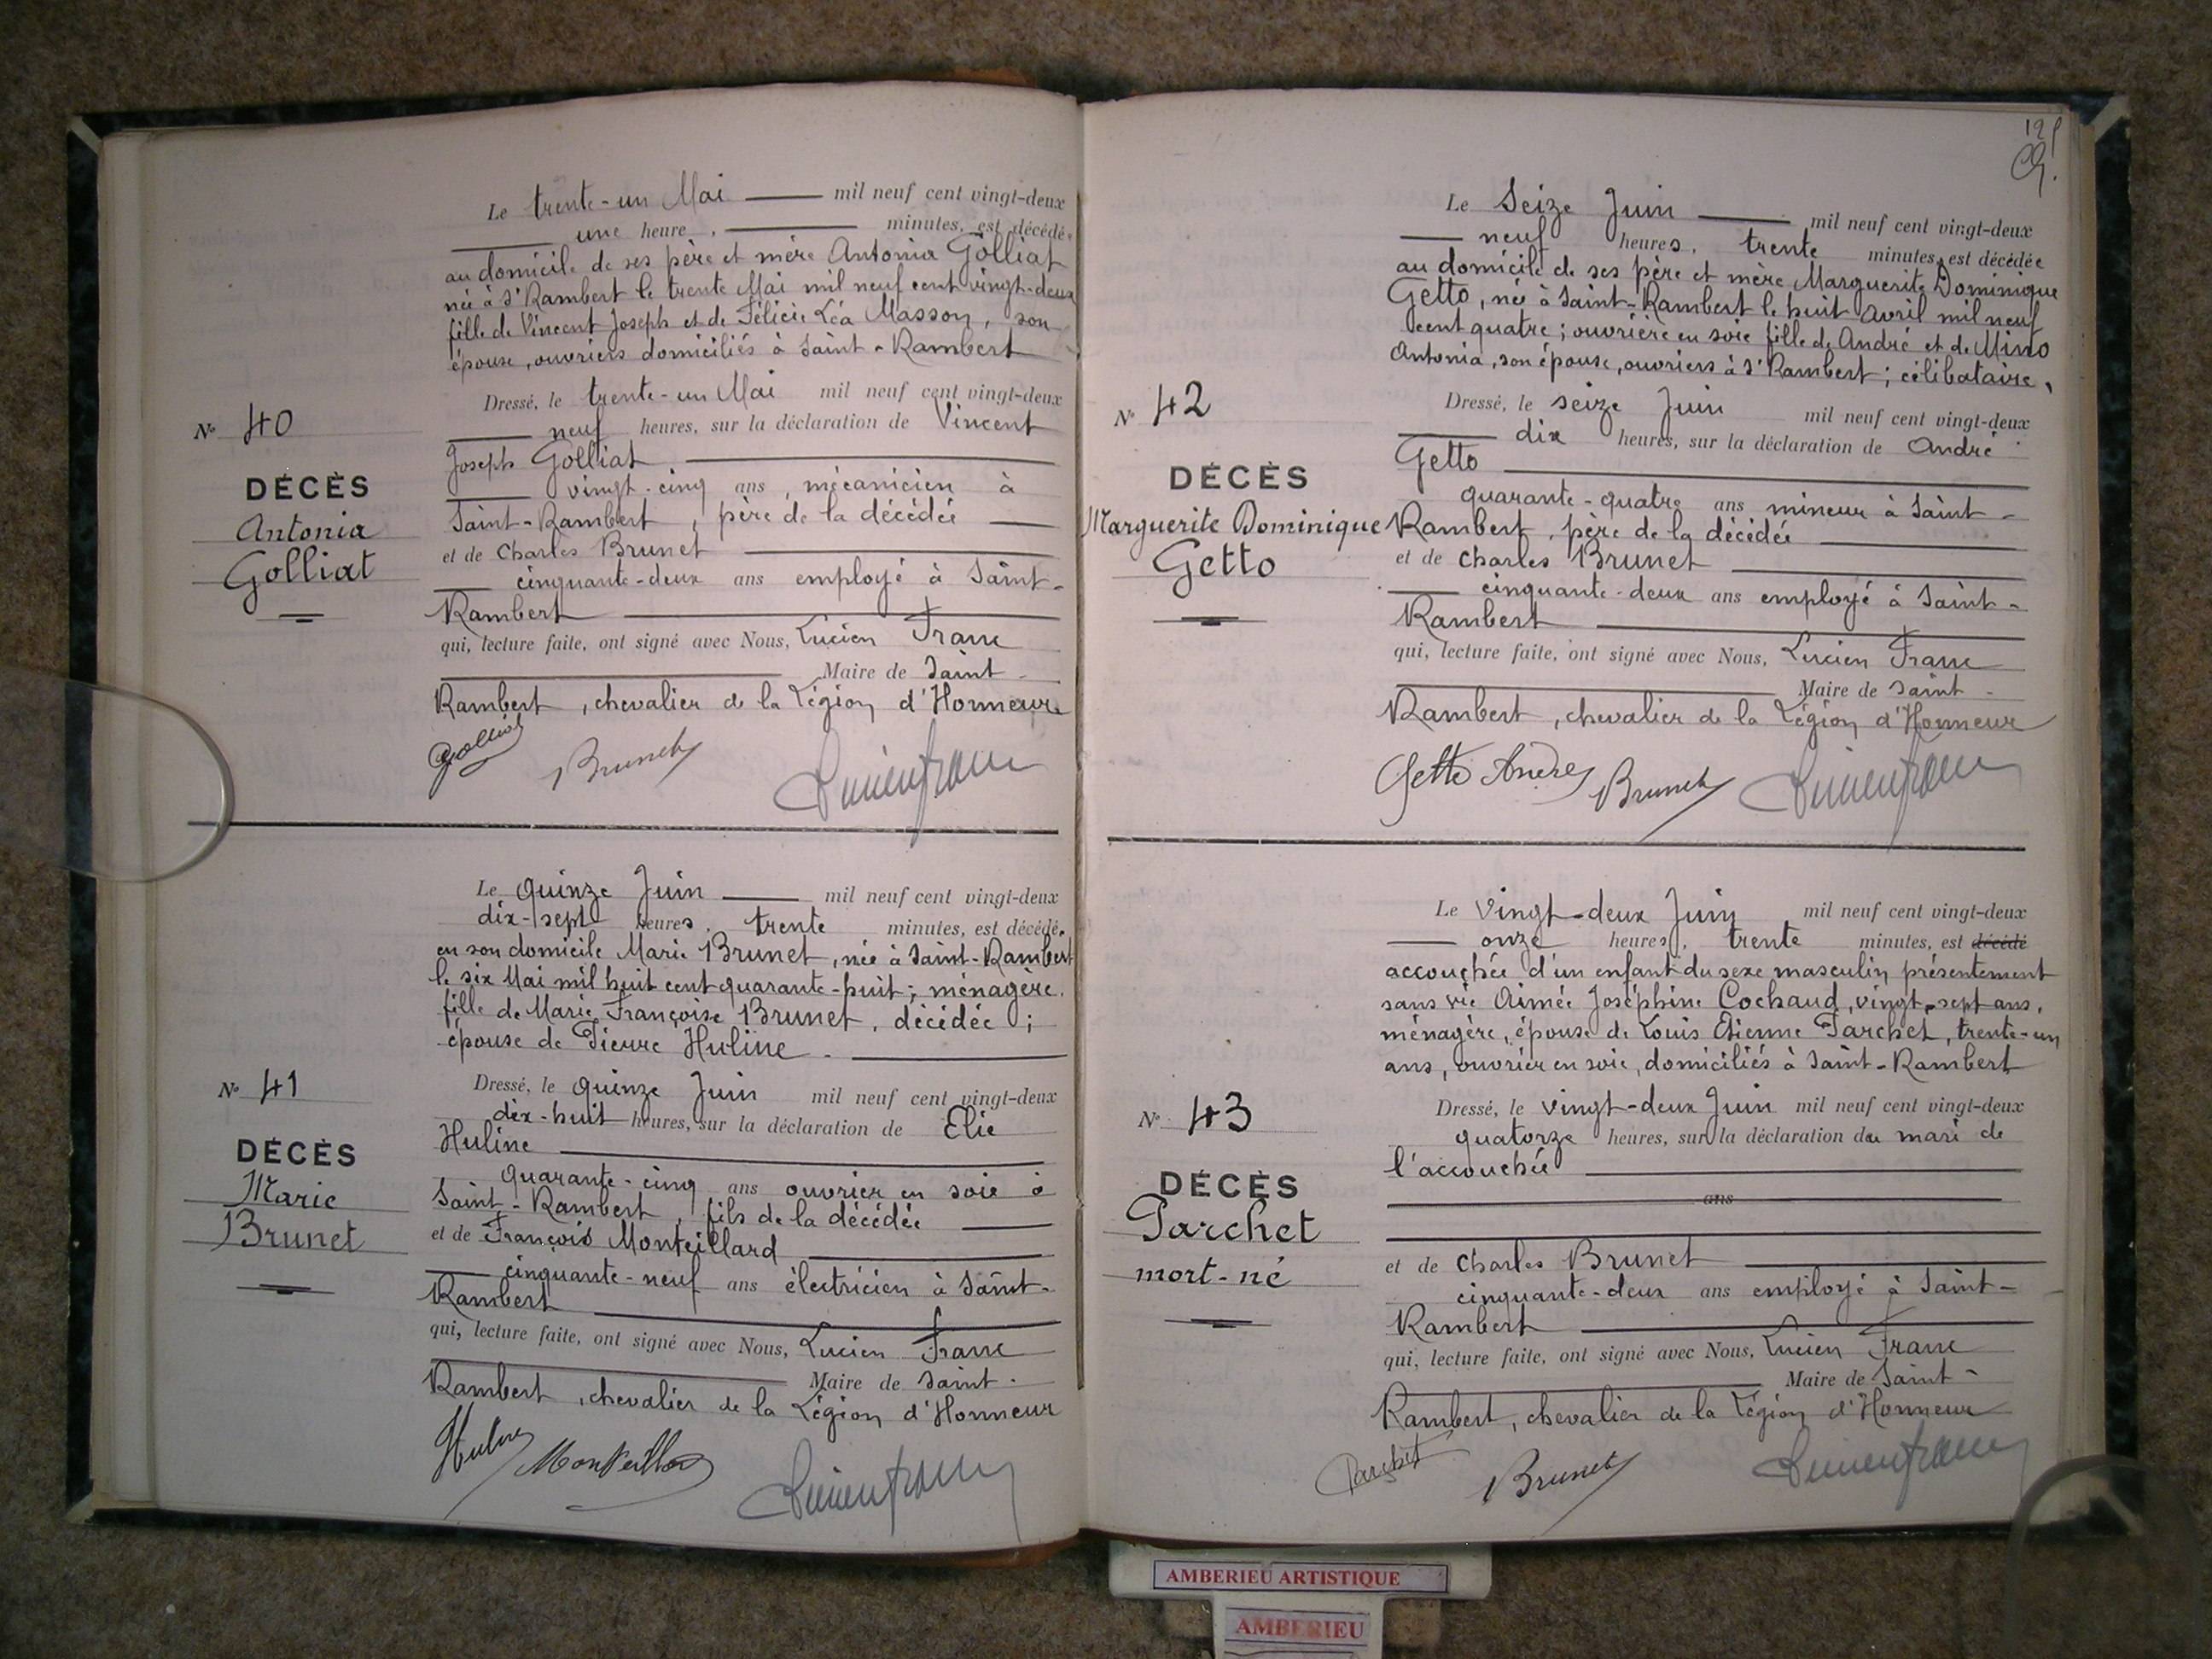 Le trente-un Mai mil neuf cent vingt-deux
une heure, minutes, est décédée
au domicile de ses père et mère Antonia Golliat
née à St Rambert le trente Mai mil neuf cent vingt-deux
fille de Vincent Joseph et de Félicie Léa Masson, son
épouse, ouvriers domiciliés à Saint-Rambert
Dressé, le trente-un Mai mil neuf cent vingt-deux
neuf heures, sur la déclaration de Vincent
Joseph Golliat
vingt-cinq ans, mécanicien à
Saint-Rambert, père de la décédée
et de Charles Brunet
cinquante-deux ans employé à Saint-
Rambert
qui, lecture faite, ont signé avec Nous, Lucien Franc
Maire de Saint-
Rambert, chevalier de la Légion d'Honneur
Golliat Brunet Lucien Franc
N° 40
DÉCÈS
Antonia
Golliat
Le quinze Juin mil neuf cent vingt-deux
dix-sept heures, trente minutes, est décédée
en son domicile Marie Brunet, née à Saint-Rambert
le six Mai mil huit cent quarante-huit; ménagère,
fille de Marie Françoise Brunet, décédée;
épouse de Pierre Huline.
Dressé, le quinze Juin mil neuf cent vingt-deux
dix-huit heures, sur la déclaration de Elie
Huline
quarante-cinq ans ouvrier en soie à
Saint-Rambert, fils de la décédée
et de François Monteillard
cinquante-neuf ans électricien à Saint-
Rambert
qui, lecture faite, ont signé avec Nous, Lucien Franc
Maire de Saint-
Rambert, chevalier de la Légion d'Honneur
Huline Monteillard Lucien Franc
N° 41
DÉCÈS
Marie
Brunet
Le Seize Juin mil neuf cent vingt-deux
neuf heures, trente minutes, est décédée
au domicile de ses père et mère Marguerite Dominique
Getto, née à Saint-Rambert le huit Avril mil neuf
cent quatre; ouvrière en soie fille de André et de Mino
Antonia, son épouse, ouvriers à St Rambert; célibataire,
Dressé, le seize Juin mil neuf cent vingt-deux
dix heures, sur la déclaration de André
Getto
quarante-quatre ans mineur à Saint-
Rambert, père de la décédée
et de Charles Brunet
cinquante-deux ans employé à Saint-
Rambert
qui, lecture faite, ont signé avec Nous, Lucien Franc
Maire de Saint-
Rambert, chevalier de la Légion d'Honneur
Getto André Brunet Lucien Franc
N° 42
DÉCÈS
Marguerite Dominique
Getto
Le Vingt-deux Juin mil neuf cent vingt-deux
onze heures, trente minutes, est décédé
accouchée d'un enfant du sexe masculin présentement
sans vie Aimée Joséphine Cochaud, vingt-sept ans,
ménagère, épouse de Louis Etienne Parchet, trente-un
ans, ouvrier en soie, domiciliés à Saint-Rambert
Dressé, le vingt-deux Juin mil neuf cent vingt-deux
quatorze heures, sur la déclaration du mari de
l'accouchée
ans
et de Charles Brunet
cinquante-deux ans employé à Saint-
Rambert
qui, lecture faite, ont signé avec Nous, Lucien Franc
Maire de Saint-
Rambert, chevalier de la Légion d'Honneur
Parchet Brunet Lucien Franc
N° 43
DÉCÈS
Parchet
mort-né
AMBERIEU ARTISTIQUE
AMBERIEU